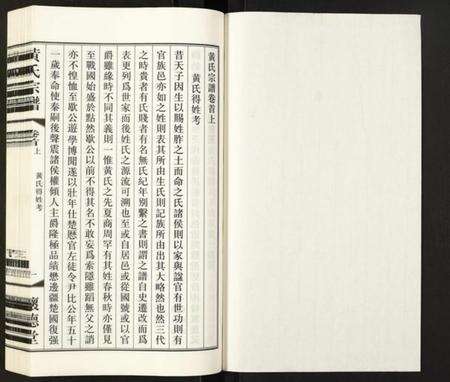 黄氏宗譜卷首上
黄氏得姓考
昔天子因生以賜姓胙之土而命之氏諸侯則以家與諡官有世功則有
官族邑亦如之姓則表其所由生氏則記族所由出其大略然也然三代
之時貴者有氏賤者有名無氏紀年別繫之書則謂之譜自史遷改而爲
表更列爲世家而後姓氏之源流可溯也至或自居邑或從國號或以官
爵雖緣時不同其義則一惟黄氏之先夏商周罕有其姓春秋時亦僅見
至戰國始盛於黠然歇公以前不得其名不敢妄爲索隱雖蹈無父之誚
亦不惶恤至歇公遊學博聞遂以壯年仕楚懸官左徒令尹比公年五十
一歲奉命使秦嗣後聲震諸侯權傾人主爵隆極品績懋邊疆楚國復强
黄氏宗譜
卷首上
黄氏得姓考
一
懷德堂